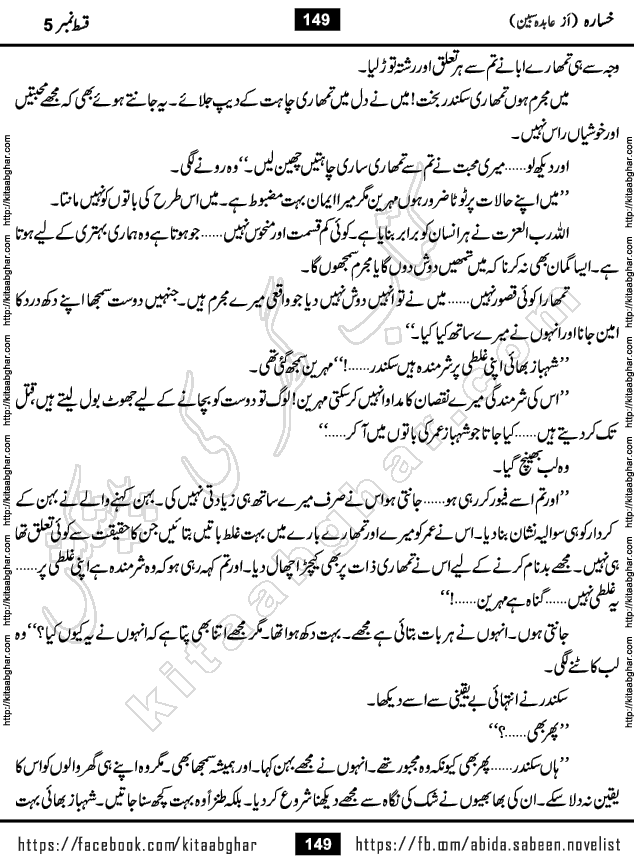 خسارہ (از عابدہ سبین)
149
قسط نمبر 5
وجہ سے ہی تمھارے ابا نے تم سے ہر تعلق اور رشتہ توڑ لیا۔
میں مجرم ہوں تمھاری سکندر بخت! میں نے دل میں تمھاری چاہت کے دیپ جلائے۔ یہ جانتے ہوئے بھی کہ مجھے محبتیں
اور خوشیاں راس نہیں۔
اور دیکھ لو...... میری محبت نے تم سے تمھاری ساری چاہتیں چھین لیں۔‘‘ وہ رونے لگی۔
’’میں اپنے حالات پر ٹوٹا ضرور ہوں مہرین مگر میرا ایمان بہت مضبوط ہے۔ میں اس طرح کی باتوں کو نہیں مانتا۔
اللہ رب العزت نے ہر انسان کو برابر بنایا ہے۔ کوئی کم قسمت اور منحوس نہیں...... جو ہوتا ہے وہ ہماری بہتری کے لیے ہوتا
ہے۔ ایسا گمان بھی نہ کرنا کہ میں تمھیں دوش دوں گا یا مجرم سمجھوں گا۔
تمھارا کوئی قصور نہیں...... میں نے تو انہیں دوش نہیں دیا جو واقعی میرے مجرم ہیں۔ جنہیں دوست سمجھا اپنے دکھ درد کا
امین جانا اور انہوں نے میرے ساتھ کیا کیا۔‘‘
’’شہباز بھائی اپنی غلطی پر شرمندہ ہیں سکندر......!‘‘ مہرین سمجھ گئی تھی۔
’’اس کی شرمندگی میرے نقصان کا مداوا نہیں کر سکتی مہرین! لوگ تو دوست کو بچانے کے لیے جھوٹ بول لیتے ہیں، قتل
تک کر دیتے ہیں...... کیا جاتا جو شہباز عمر کی باتوں میں آ کر......‘‘
وہ لب بھینچ گیا۔
’’اور تم اسے فیور کر رہی ہو...... جانتی ہو اس نے صرف میرے ساتھ ہی زیادتی نہیں کی۔ بہن کہنے والے نے بہن کے
کردار کو ہی سوالیہ نشان بنا دیا۔ اس نے عمر کو میرے اور تمھارے بارے میں بہت غلط باتیں بتائیں جن کا حقیقت سے کوئی تعلق تھا
ہی نہیں۔ مجھے بدنام کرنے کے لیے اس نے تمھاری ذات پر بھی کیچڑ اچھال دیا۔ اور تم کہہ رہی ہو کہ وہ شرمندہ ہے اپنی غلطی پر......
یہ غلطی نہیں...... گناہ ہے مہرین......!‘‘
جانتی ہوں۔ انہوں نے ہر بات بتائی ہے مجھے۔ بہت دکھ ہوا تھا۔ مگر مجھے اتنا بھی پتا ہے کہ انہوں نے یہ کیوں کیا؟‘‘ وہ
لب کاٹنے لگی۔
سکندر نے انتہائی بے یقینی سے اسے دیکھا۔
’’پھر بھی......؟‘‘
’’ہاں سکندر...... پھر بھی کیونکہ وہ مجبور تھے۔ انہوں نے مجھے بہن کہا۔ اور ہمیشہ سمجھا بھی۔ مگر وہ اپنے ہی گھر والوں کو اس کا
یقین نہ دلا سکے۔ ان کی بھابھیوں نے شک کی نگاہ سے مجھے دیکھنا شروع کر دیا۔ بلکہ طنزاً وہ بہت کچھ سنا جاتیں۔ شہباز بھائی بہت
https://facebook.com/kitaabghar
149
https://fb.com/abida.sabeen.novelist
http://kitaabghar.com http://kitaabghar.com http://kitaabghar.com http://kitaabghar.com http://kitaabghar.com http://kitaabghar.com
http://kitaabghar.com http://kitaabghar.com http://kitaabghar.com http://kitaabghar.com http://kitaabghar.com http://kitaabghar.com
کتاب گھر کی پیشکش
kitaabghar.com